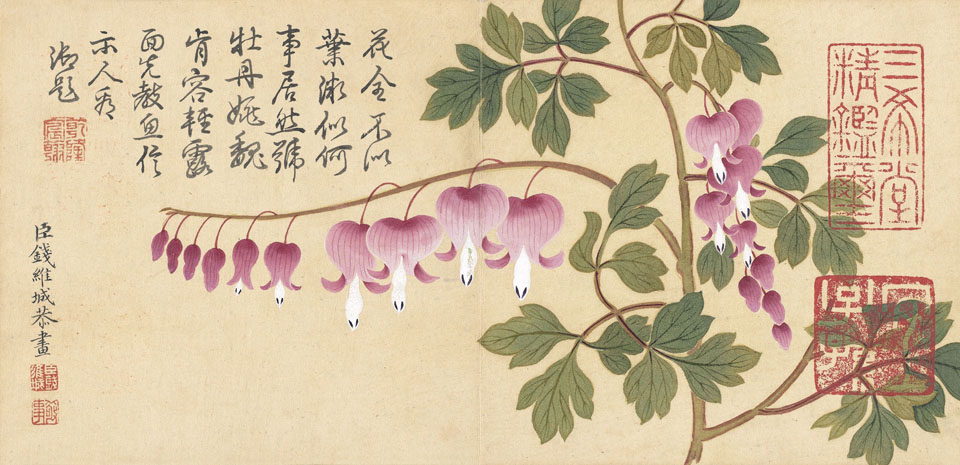 三希堂
精鑑璽
花全不似
葉微似何
事居然號
牡丹姚魏
肯容輕露
面先教魚
示人看
御題
乾隆
宸翰
臣錢維城恭畫